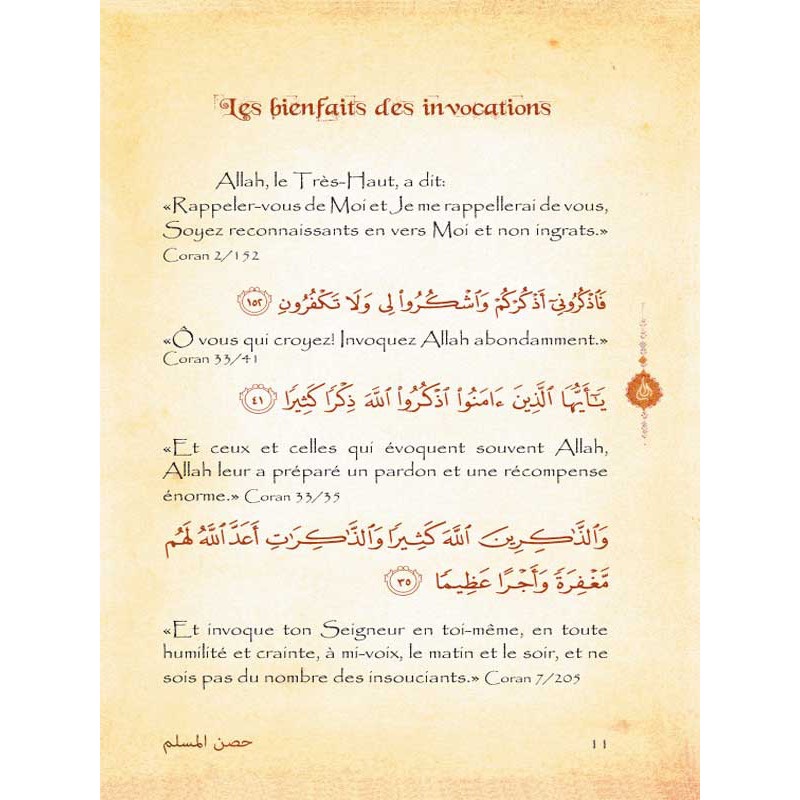 Les bienfaits des invocations
Allah, le Très-Haut, a dit:
«Rappeler-vous de Moi et Je me rappellerai de vous,
Soyez reconnaissants en vers Moi et non ingrats.»
Coran 2/152
فَاذْكُرُونِي أَذْكُرْكُمْ وَاشْكُرُوا لِي وَلَا تَكْفُرُونِ ١٥٢
«Ô vous qui croyez! Invoquez Allah abondamment.»
Coran 33/41
يَٰٓأَيُّهَا الَّذِينَ ءَامَنُوا اذْكُرُوا اللَّهَ ذِكْرًا كَثِيرًا ٤١
«Et ceux et celles qui évoquent souvent Allah,
Allah leur a préparé un pardon et une récompense
énorme.» Coran 33/35
وَالذَّٰكِرِينَ اللَّهَ كَثِيرًا وَالذَّٰكِرَٰتِ أَعَدَّ اللَّهُ لَهُم
مَّغْفِرَةً وَأَجْرًا عَظِيمًا ٣٥
«Et invoque ton Seigneur en toi-même, en toute
humilité et crainte, à mi-voix, le matin et le soir, et ne
sois pas du nombre des insouciants.» Coran 7/205
حصن المسلم
11